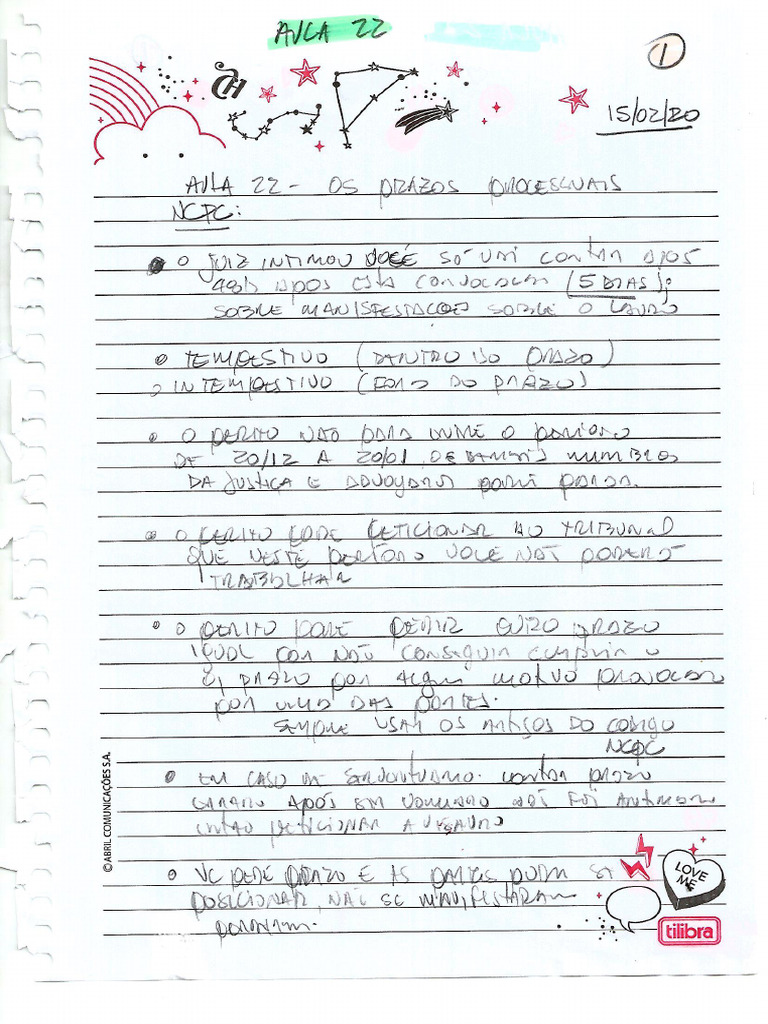 AULA 22
1
15/02/20
AULA 22 - OS PRAZOS PROCESSUAIS
NCPC:
O JUIZ INTIMOU VOCÊ SÓ VAI CONTAR APÓS
48h APÓS ESTA CONVOCAÇÃO (5 DIAS):
SOBRE MANISFESTAÇÕES SOBRE O LAUDO
TEMPESTIVO (DENTRO DO PRAZO)
INTEMPESTIVO (FORA DO PRAZO)
O PERITO NÃO PARA NUME O PERÍODO
DE 20/12 A 20/01, OS DEMAIS MEMBROS
DA JUSTIÇA E ADVOGADOS PARA
O PERITO PODE PETICIONAR AO TRIBUNAL
QUE NESTE PERÍODO VOCE NÃO PODERÁ
TRABALHAR
O PERITO PODE PEDIR OUTRO PRAZO
IGUAL POR NÃO CONSEGUIR CUMPRIR O
PRAZO POR ALGUM MOTIVO PROVOCADO
POR UMA DAS PARTES.
SEMPRE USAR OS ARTIGOS DO CODIGO
NCPC
EM CASO DE CONTAR PRAZO
APÓS EM NÃO FOI
ENTÃO PETICIONAR
VC PEDE PRAZO E AS PARTES PODEM SE
POSICIONAR, NÃO SE MANIFESTARAM
© ABRIL COMUNICAÇÕES S.A.
LOVE
ME
tilibra